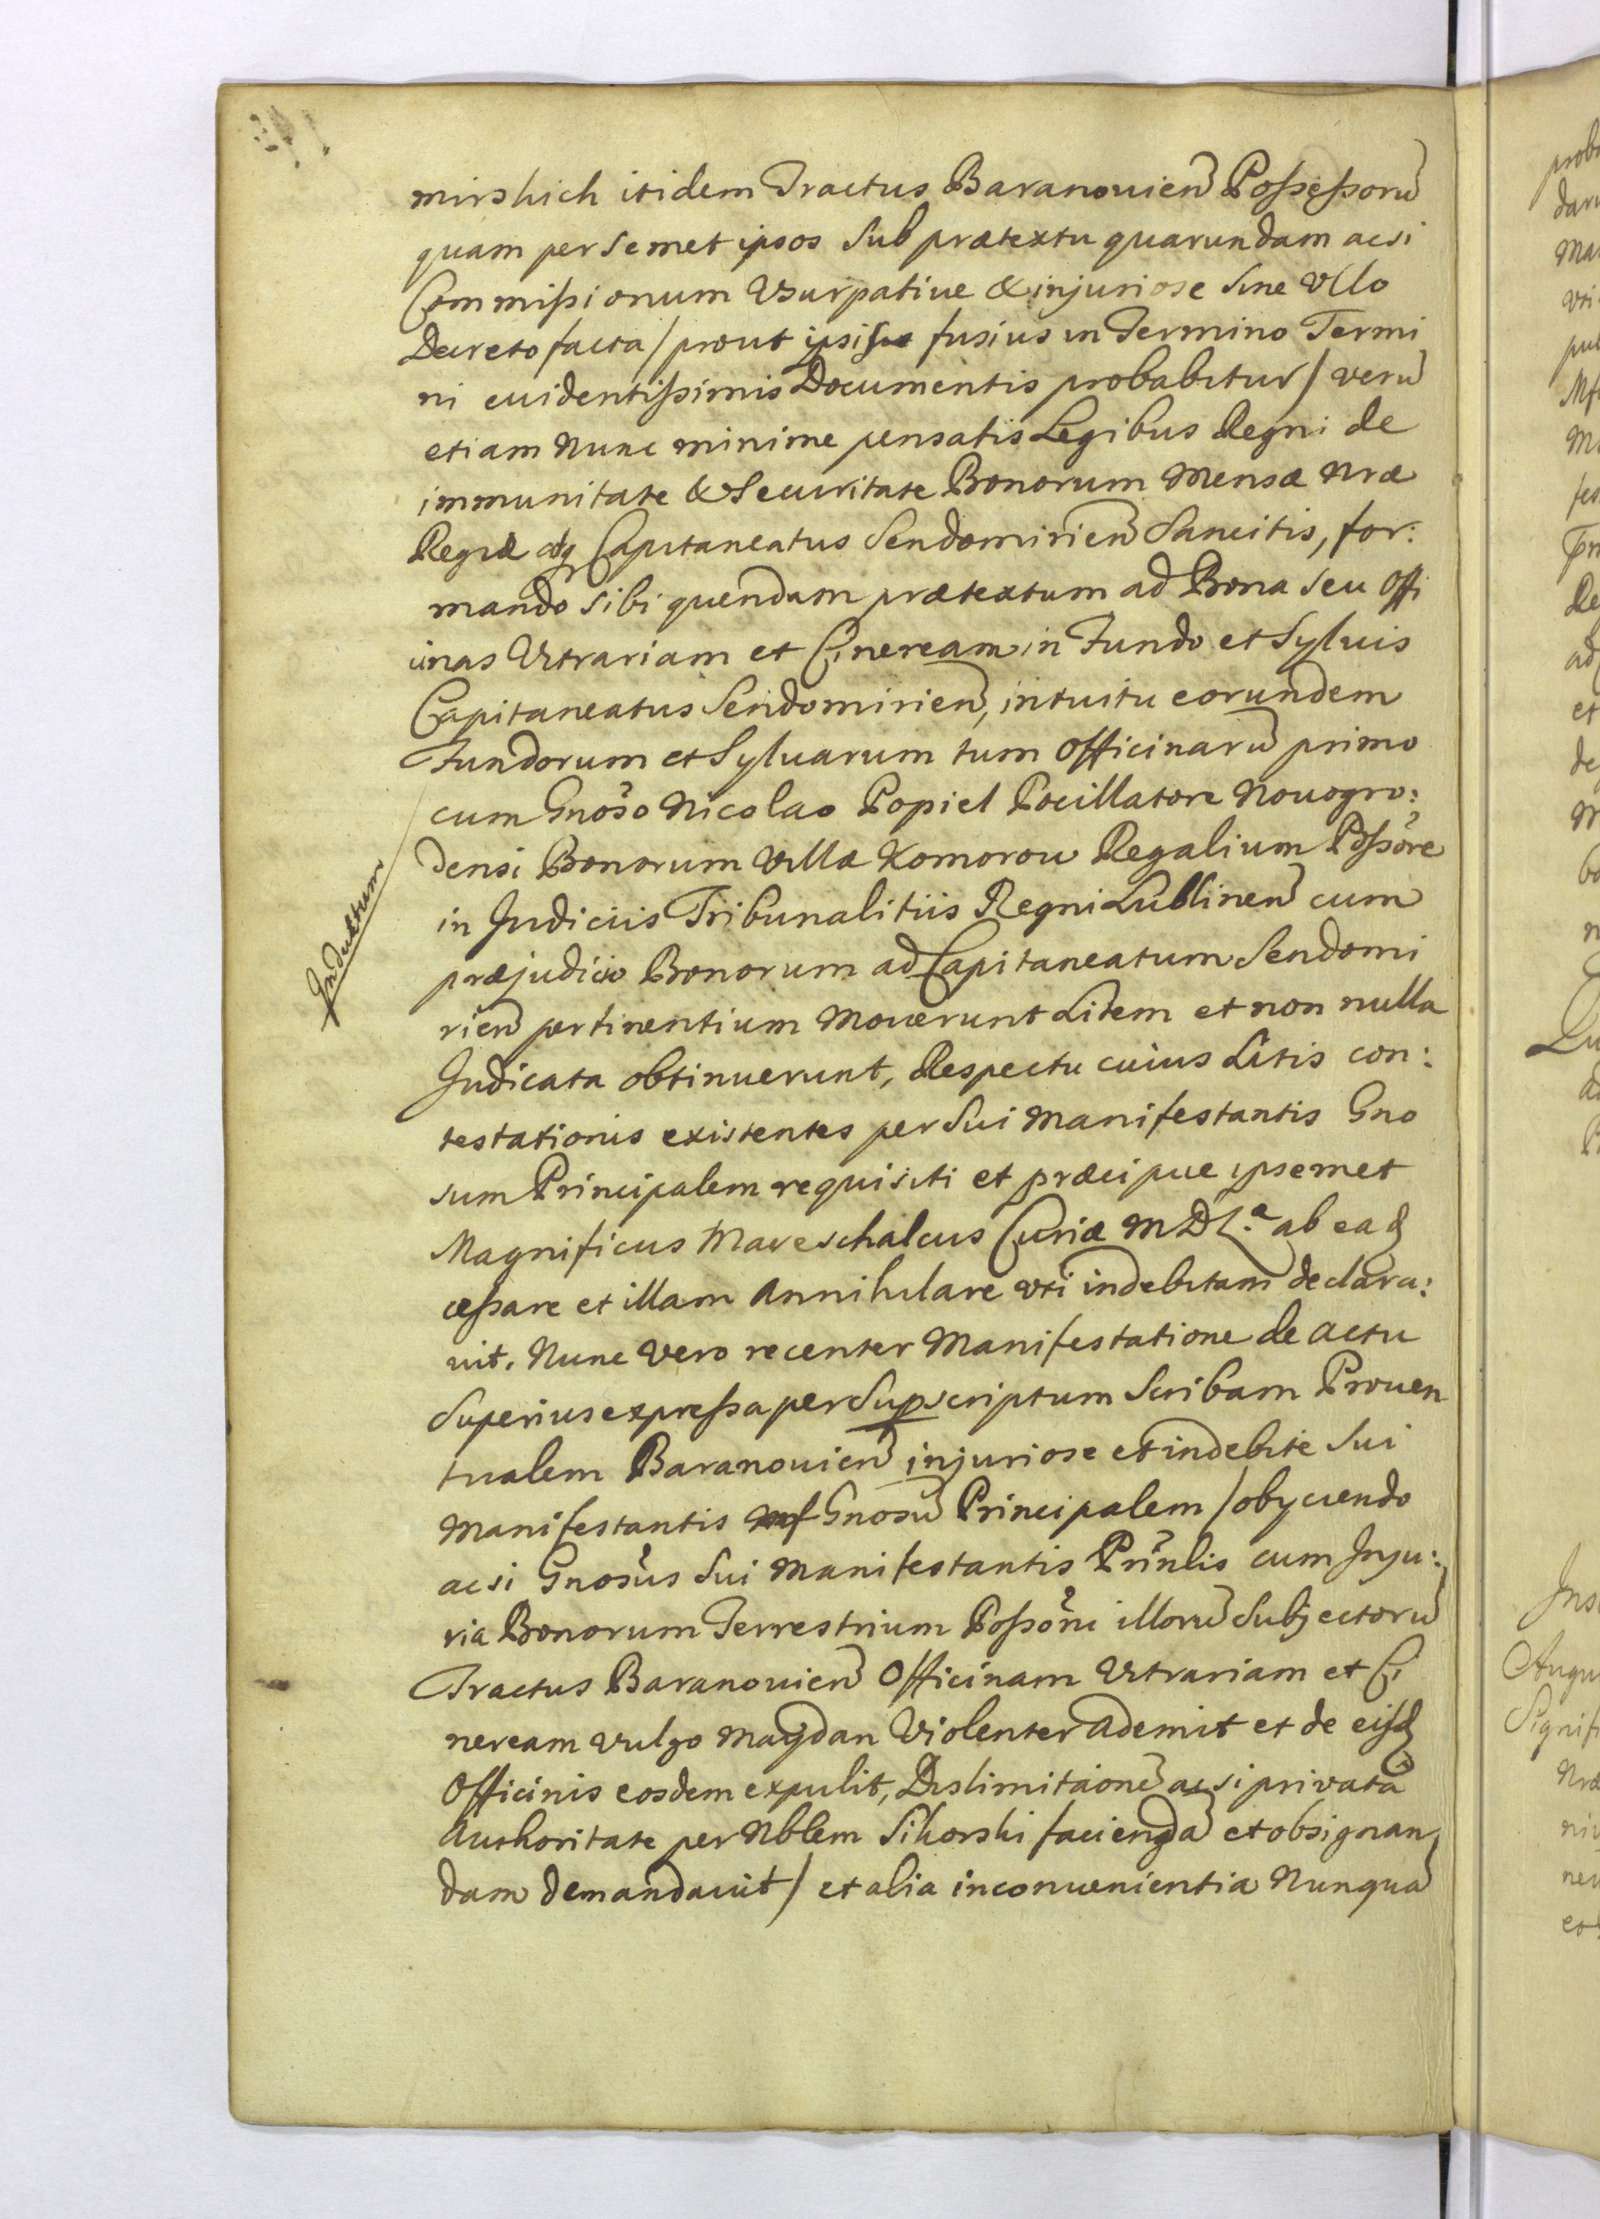 mirskich itidem Tractus Baranouien Possessorū
quam per semet ipsos sub prætextu quarundam acsi
Commissionum Usurpatiue & injuriose sine Vllo
Decreto facta / prout fusius in Termino Termi
ni euidentissimis Documentis probabitur / verū
etiam Nunc minime pensatis Legibus Regni de
immunitate & Securitate Bonorum Mensæ Nræ
Regiæ atq Capitaneatus Sendomirien Sancitis, for:
mando sibi quendam prætextum ad Bona seu Offi
cinas Vitrariam et Cineream in Fundo et Syluis
Capitaneatus Sendomirien, intuitu eorundem
Fundorum et Syluarum tum Officinarū primo
cum Gnoso Nicolao Popiel Pocillatore Nouogro:
densi Bonorum Villæ Komorow Regalium Possore
in Judiciis Tribunalitiis Regni Lublinen cum
præjudicio Bonorum ad Capitaneatum Sendomi
rien pertinentium Mouerunt Litem et non nulla
Judicata obtinuerunt, Respectu cuius Litis con:
testationis existentes per Sui Manifestantis Gno
sum Principalem requisiti et præcipue ipsemet
Magnificus Mareschalcus Curiæ M D L.æ ab ead
cessare et illam Annihilare vti indebitam declara:
uit. Nunc vero recenter Manifestatione de actu
Superius expressa per Supscriptum Scribam Prouen
tualem Baranouien injuriose et indebite Sui
Manifestantis Gnosū Principalem / obyciendo
acsi Gnosus Sui Manifestantis Prinlis cum Inju:
ria Bonorum Terrestrium Possoni illorū Subjectorū
Tractus Baranouien Officinam Vitrariam et Ci
neream vulgo Maydan Violenter Ademit et de eisd
Officinis eosdem expulit, Dislimitaione acsi privata
Authoritate per Nblem Sikorski faciendā et obsignan
dam demandauit / et alia inconuenientia Nunquā
Induktum